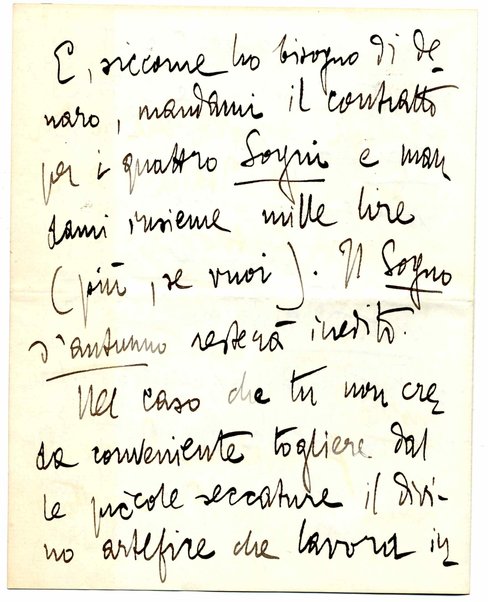 E, siccome ho bisogno di de-
naro, mandami il contratto
per i quattro Sogni e man
dami insieme mille lire
(più, se vuoi). Il Sogno
d'autunno resterà inedito.
Nel caso che tu non cre
da conveniente togliere dal
le piccole seccature il divi-
no artefire che lavora in